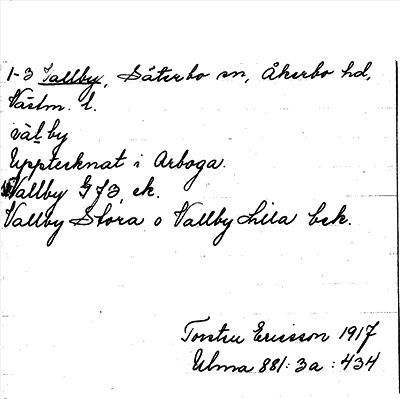 1-3 Vallby, Säterbo sn, Åkerbo hd,
Västm. l.
vàl by
Upptecknat i Arboga.
Vallby G J3, ek.
Vallby Stora o Vallby Lilla bek.
Torsten Ericsson 1917
Ulma 881:3a:434